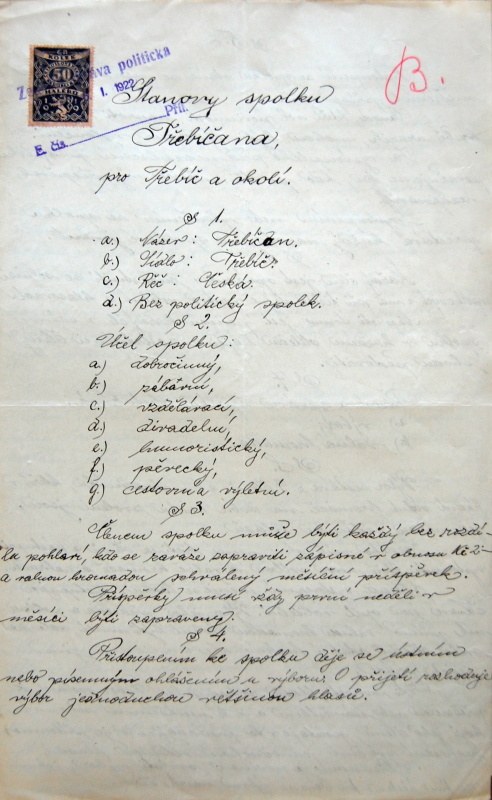 KOLEK
50
HALÉŘŮ
áva politická
I. 1922
Příl.
E. čís.
B.
Stanovy spolku
Třebíčana,
pro Třebíč a okolí.
§ 1.
a.) Název: Třebíčan.
b.) Sídlo: Třebíč.
c.) Řeč: Česká.
d.) Bez politický spolek.
§ 2.
Účel spolku:
a.) dobročinný,
b.) zábavní,
c.) vzdělávací,
d.) divadelní,
e.) humoristický,
f.) pěvecký,
g.) cestovní a výletní.
§ 3.
Členem spolku může býti každý bez rozdí-
lu pohlaví, kdo se zaváže zapraviti zápisné v obnosu Kč 2·-
a valnou hromadou schválený měsíční příspěvek.
Příspěvky musí vždy první neděli v
měsíci býti zapraveny.
§ 4.
Přistoupením ke spolku děje se ústním
nebo písemným ohlášením u výboru. O přijetí rozhoduje
výbor jednoduchou většinou hlasů.